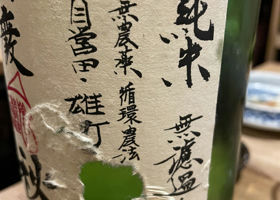 純米
無濾過
無農薬 循環農法
自営田 雄町
秋